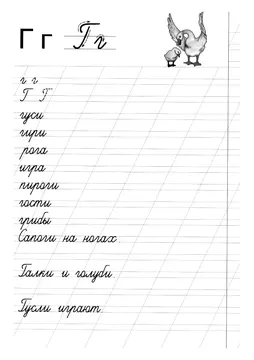 Г г Г г
г г
Г Г
гуси
гири
рога
игра
пироги
гости
грибы
Сапоги на ногах.
Галки и голуби.
Гусли играют.